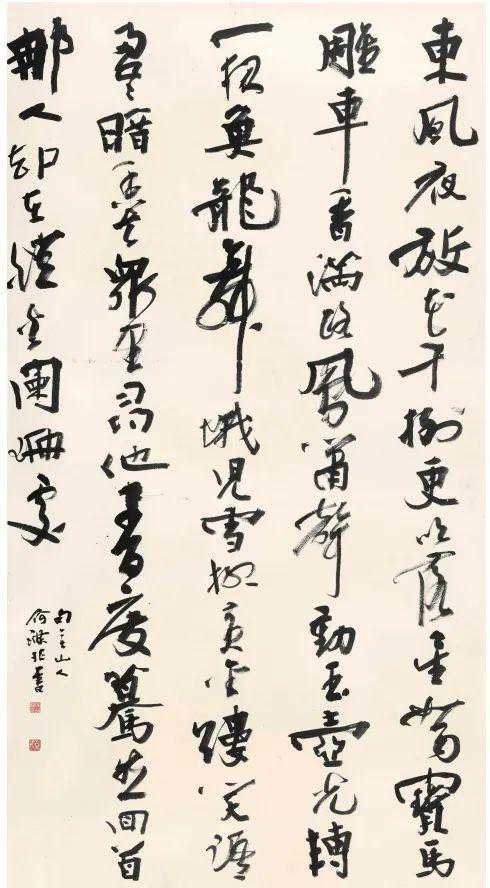 東風夜放花千樹更吹落星如雨寶馬
雕車香滿路鳳簫聲動玉壺光轉
一夜魚龍舞蛾兒雪柳黃金縷笑語
盈盈暗香去眾里尋他千百度驀然回首
那人卻在燈火闌珊處
山人
何滌非書